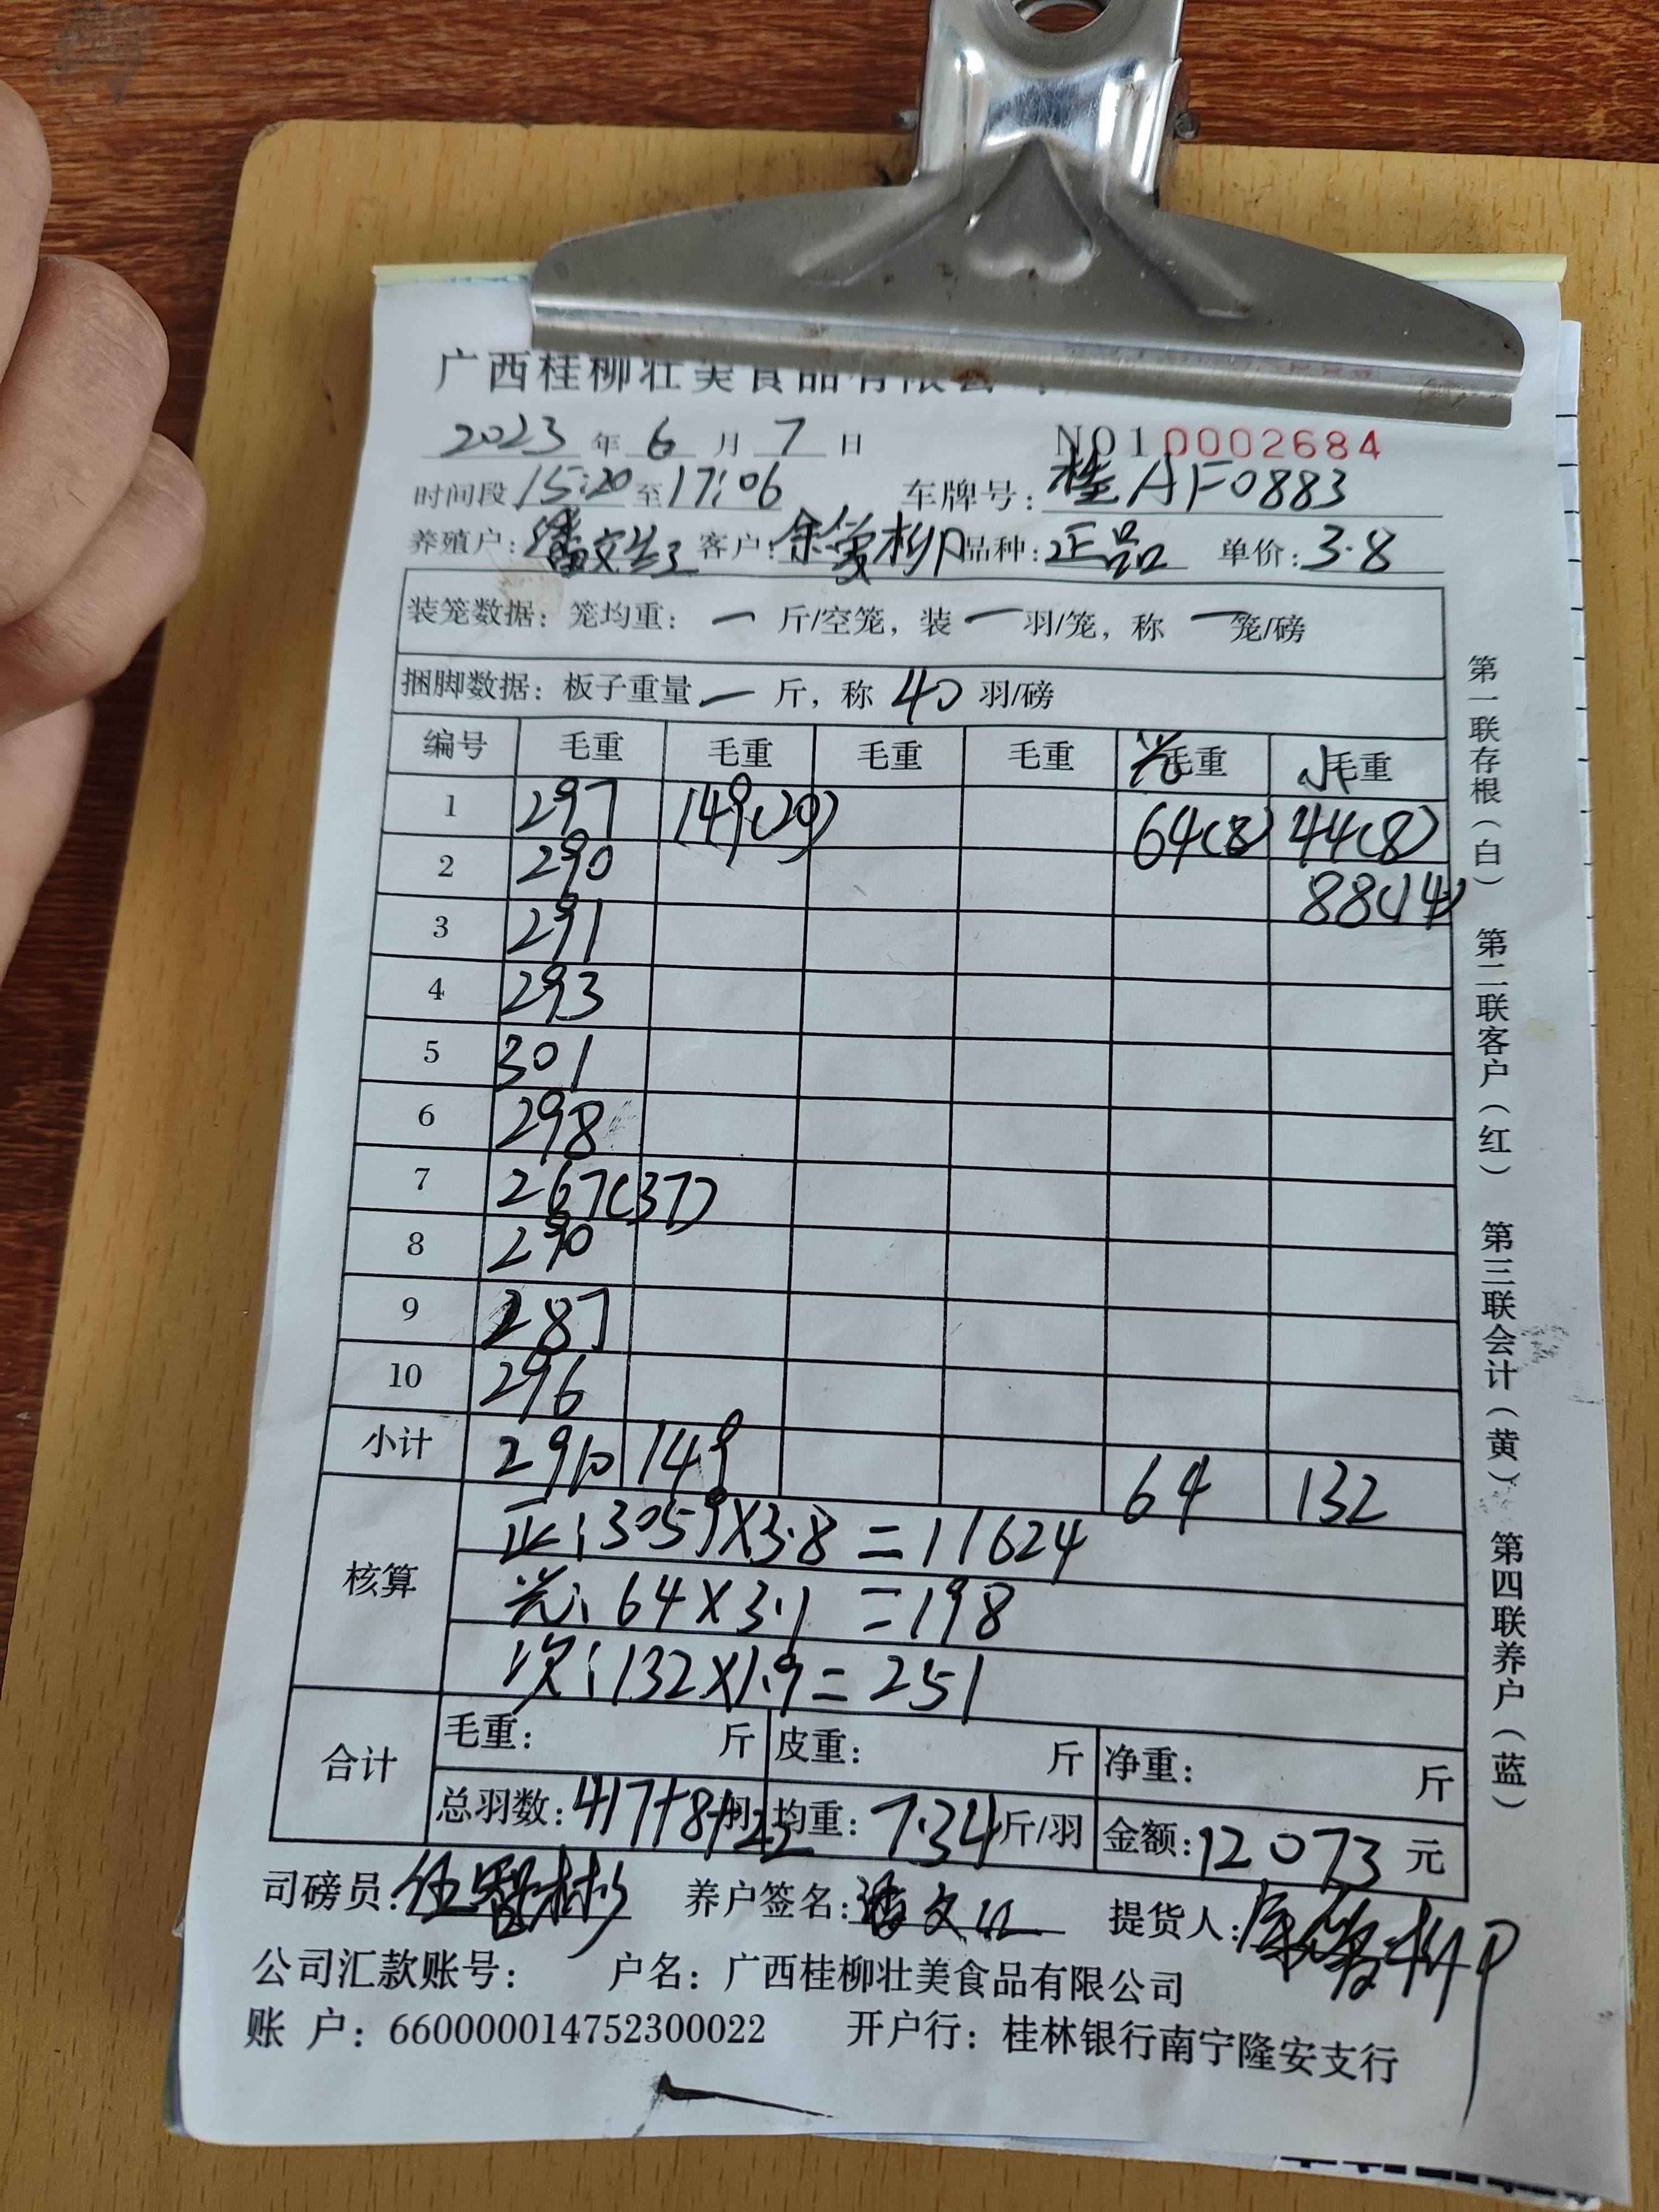 广西桂柳壮美食品有限公
2023 年 6 月 7 日 NO10002684
时间段 15:20 至 17:06 车牌号: 桂AF0883
养殖户: 潘文 客户: 品种: 正品 单价: 3.8
装笼数据: 笼均重: 一 斤/空笼, 装 一 羽/笼, 称 一 笼/磅
捆脚数据: 板子重量 一 斤, 称 40 羽/磅
编号 毛重 毛重 毛重 毛重 光毛重 小毛重
1 297 149(20) 64(8) 44(8)
2 290 88(14)
3 291
4 293
5 301
6 298
7 267(37)
8 290
9 287
10 296
小计 2910 149 64 132
核算 正: 3059X3.8=11624
光: 64X3.1=198
次: 132X1.9=251
合计 毛重: 斤 皮重: 斤 净重: 斤
总羽数: 417+8+22 羽 均重: 7.34 斤/羽 金额: 12073 元
司磅员: 养户签名: 潘文 提货人:
公司汇款账号: 户名: 广西桂柳壮美食品有限公司
账 户: 660000014752300022 开户行: 桂林银行南宁隆安支行
第一联存根(白) 第二联客户(红) 第三联会计(黄) 第四联养户(蓝)